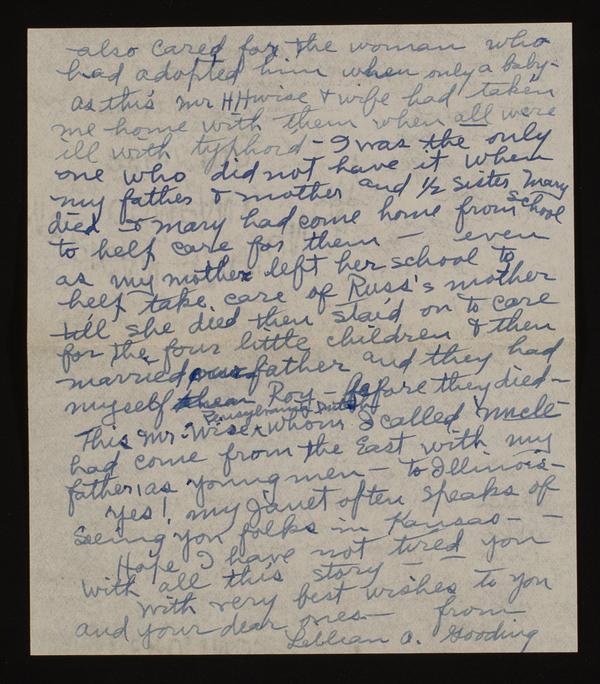 also cared for the woman who
had adopted him when only a baby-
as this Mr HHWise & wife had taken
me home with them when all were
ill with typhoid - I was the only
one who did not have it when
my father & mother and 1/2 sister Mary
died - & Mary had come home from school
to help care for them - even
as my mother left her school to
help take care of Russ's mother
till she died then staid on to care
for the four little children & then
married our father and they had
myself then Roy - before they died -
Pennsylvania Dutch
This Mr. Wise whom I called Uncle
had come from the East with my
father, as young men - to Illinois -
Yes! my Janet often speaks of
seeing you folks in Kansas - -
Hope I have not tired you
with all this story - -
With very best wishes to you
and your dear ones - from
Lillian A. Gooding